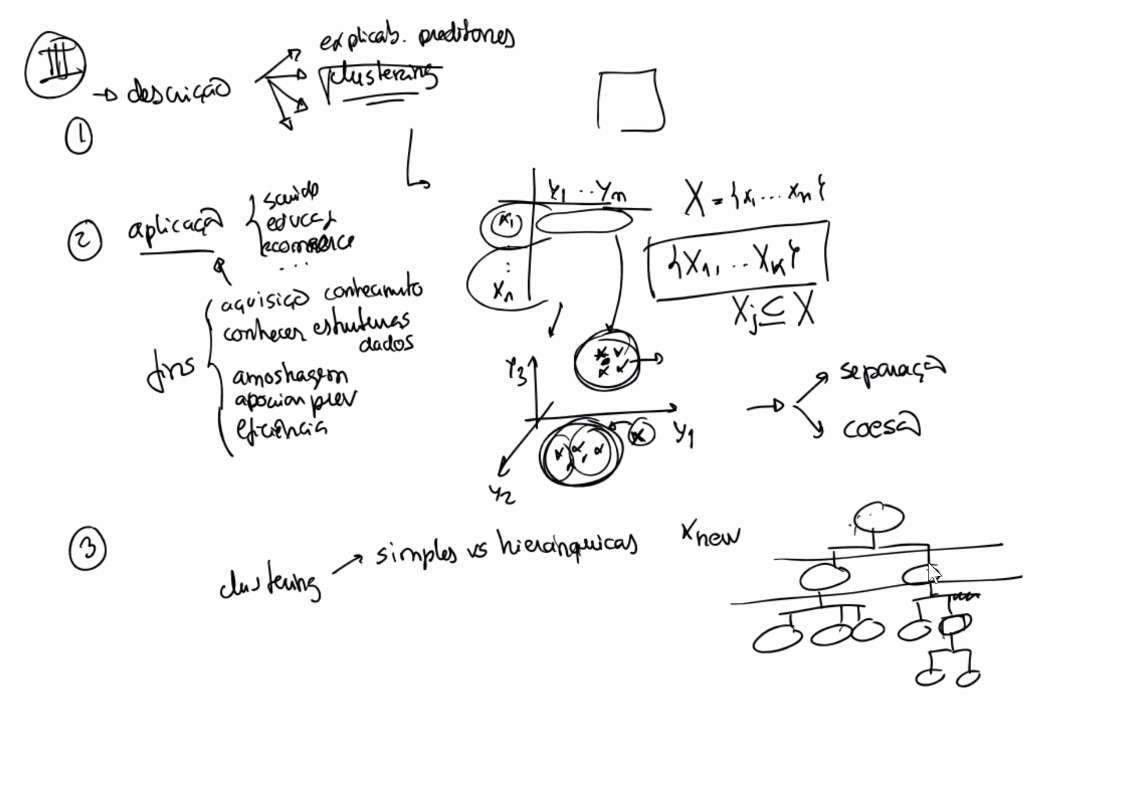 III
→ descrição
explicab. preditores
clustering
①
② aplicação
saúde
educaç
ecommerce
...
fins
aquisição conhecimento
conhecer estruturas
dados
amostragem
apoiar prev
eficiência
y₁ ... yₘ
x₁
:
xₙ
X = {x₁ ... xₙ}
{X₁, ... Xₖ}
Xⱼ ⊆ X
y₃
y₁
y₂
→ separação
coesão
③
clustering → simples vs hierárquicas
xnew